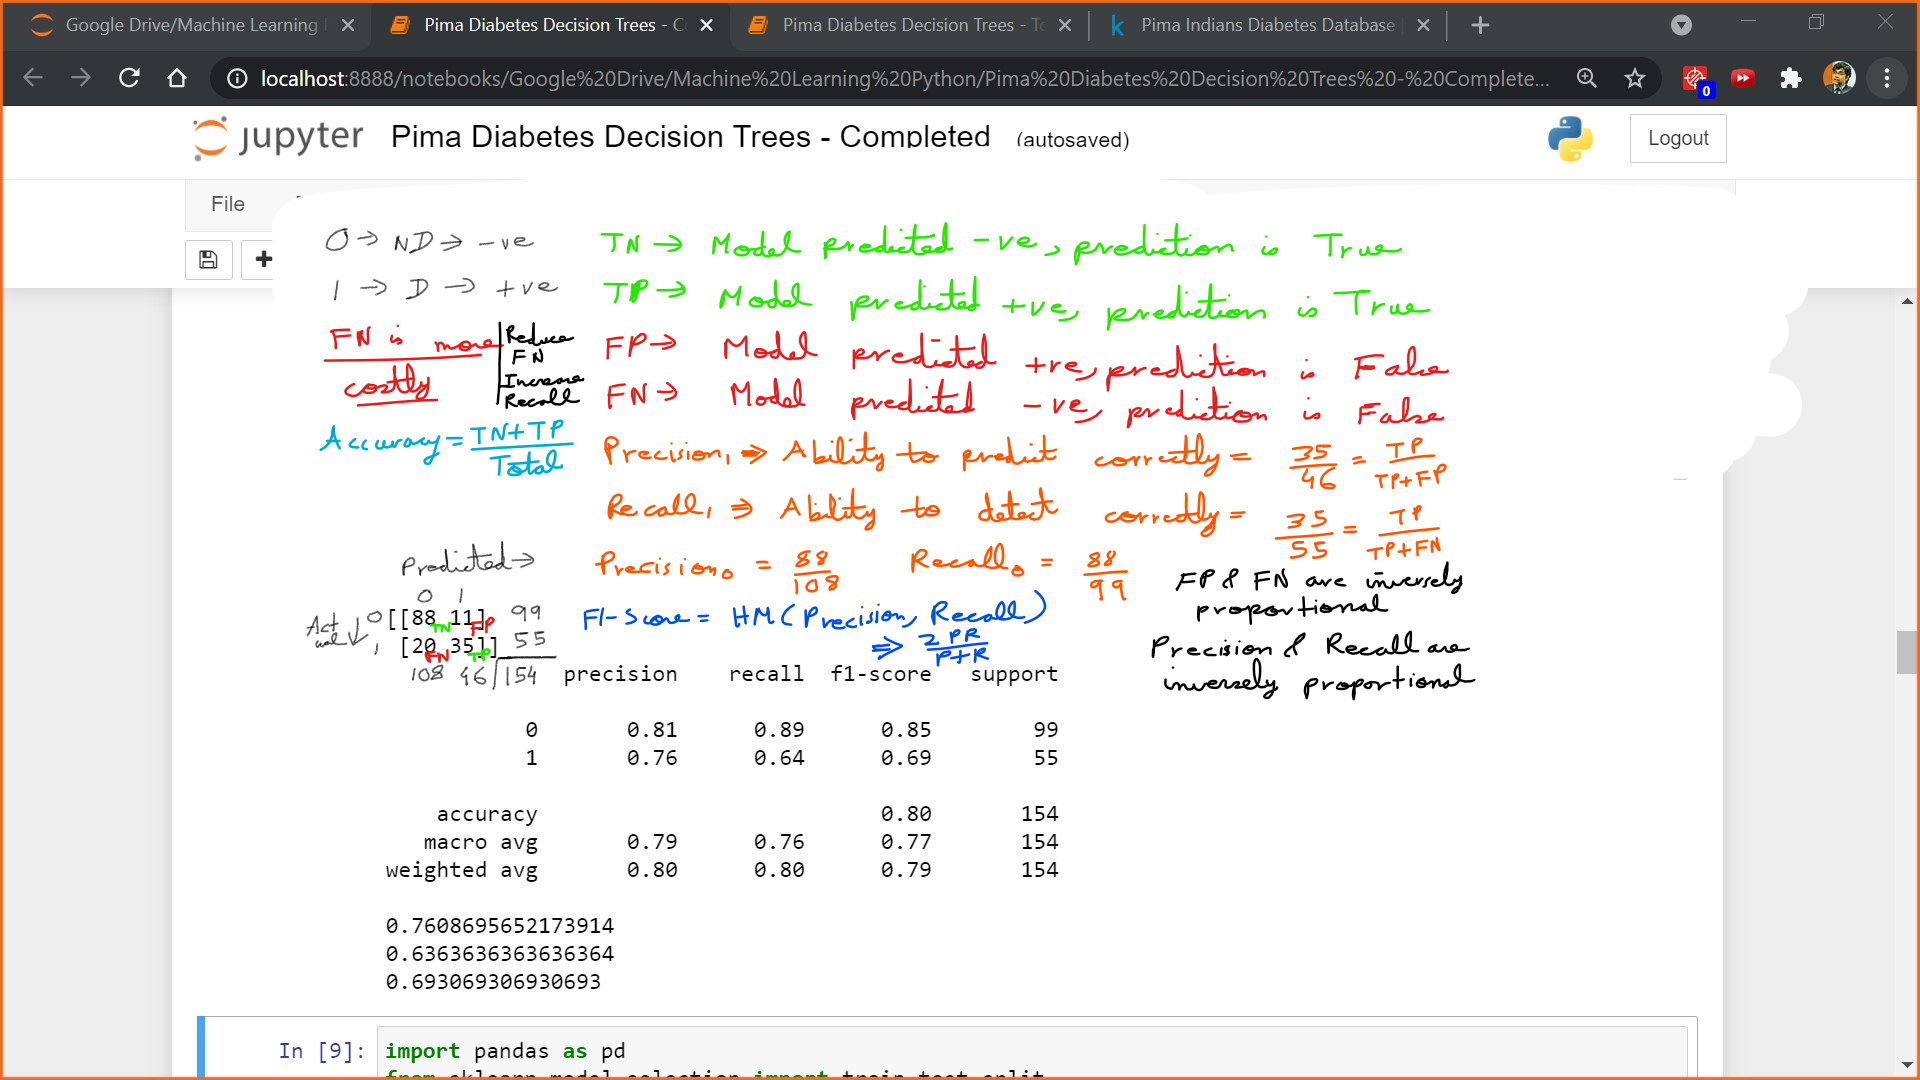 Google Drive/Machine Learning
Pima Diabetes Decision Trees - C
Pima Diabetes Decision Trees - To
Pima Indians Diabetes Database
localhost:8888/notebooks/Google%20Drive/Machine%20Learning%20Python/Pima%20Diabetes%20Decision%20Trees%20-%20Complete...
0
jupyter Pima Diabetes Decision Trees - Completed (autosaved)
Logout
File
0 → ND → -ve
1 → D → +ve
TN → Model predicted -ve, prediction is True
TP → Model predicted +ve, prediction is True
FN is more costly
Reduce FN
Increase Recall
FP → Model predicted +ve, prediction is False
FN → Model predicted -ve, prediction is False
Accuracy = TN+TP / Total
Precision₁ ⇒ Ability to predict correctly = 35/46 = TP/TP+FP
Recall₁ ⇒ Ability to detect correctly = 35/55 = TP/TP+FN
Precision₀ = 88/108 Recall₀ = 88/99
FP & FN are inversely proportional
Precision & Recall are inversely proportional
F1-Score = HM(Precision, Recall)
⇒ 2PR/P+R
Predicted →
0 1
Actual ↓ 0 [[88 11] 99
TN FP
1 [20 35]] 55
FN TP
108 46 154
precision recall f1-score support
0 0.81 0.89 0.85 99
1 0.76 0.64 0.69 55
accuracy 0.80 154
macro avg 0.79 0.76 0.77 154
weighted avg 0.80 0.80 0.79 154
0.7608695652173914
0.6363636363636364
0.693069306930693
In [9]: import pandas as pd
from sklearn.model_selection import train_test_split